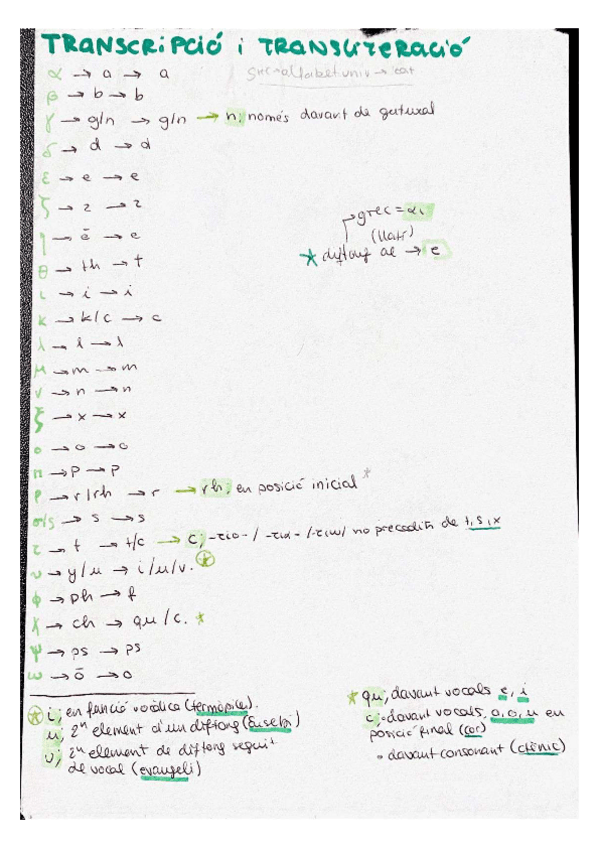 TRANSCRIPCIÓ i TRANSLITERACIÓ
α → a → a
β → b → b
γ → g/n → g/n → n; només davant de gutural
δ → d → d
ε → e → e
ζ → z → z
grec = αι
(llatí)
η → ē → e
* diftong ae → e
θ → th → t
ι → i → i
κ → k/c → c
λ → l → l
μ → m → m
ν → n → n
ξ → x → x
ο → o → o
π → p → p
ρ → r/rh → r → rh; en posició inicial *
σ/ς → s → s
τ → t → t/c → c; -τιο-/ -τια- /-τιω/ no precedits de t, s, x
υ → y/u → i/u/v. *
φ → ph → f
χ → ch → qu/c. *
ψ → ps → ps
ω → ō → o
* i; en funció vocàlica (termòpiles).
u; 2n element d'un diftong (Eusebi)
v; 2n element de diftong seguit
de vocal (evangeli)
* qu; davant vocals e, i
c; - davant vocals, a, o, u en
posició final (cor)
- davant consonant (clínic)